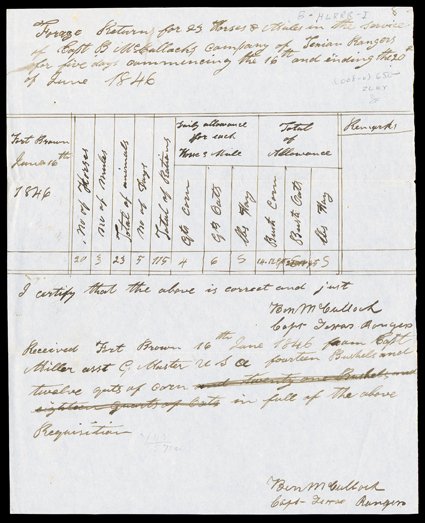 Forage Return for 23 Horses & Mules in the service
of Capt B McCullachs Company of Texian Rangers
for five days commencing the 16th and ending the 20th
of June 1846
Fort Brown
June 16th
1846
No of Horses
No of Mules
Total of animals
No of Days
Total of Rations
Daily allowance
for each
Horse & Mule
Qts Corn
Qts Oats
lbs Hay
Total
of
Allowance
Bush Corn
Bush Oats
lbs Hay
Remarks
20 3 23 5 115 4 6 S 14.12
I certify that the above is correct and just
Ben McCulloch
Capt Texas Rangers
Received Fort Brown 16th June 1846 from Capt
Miller asst Q Master U S A fourteen Bushels and
twelve quts of corn and twenty one Bushels and
eighteen quarts of Oats in full of the above
Requisition
Ben McCulloch
Capt Texas Rangers